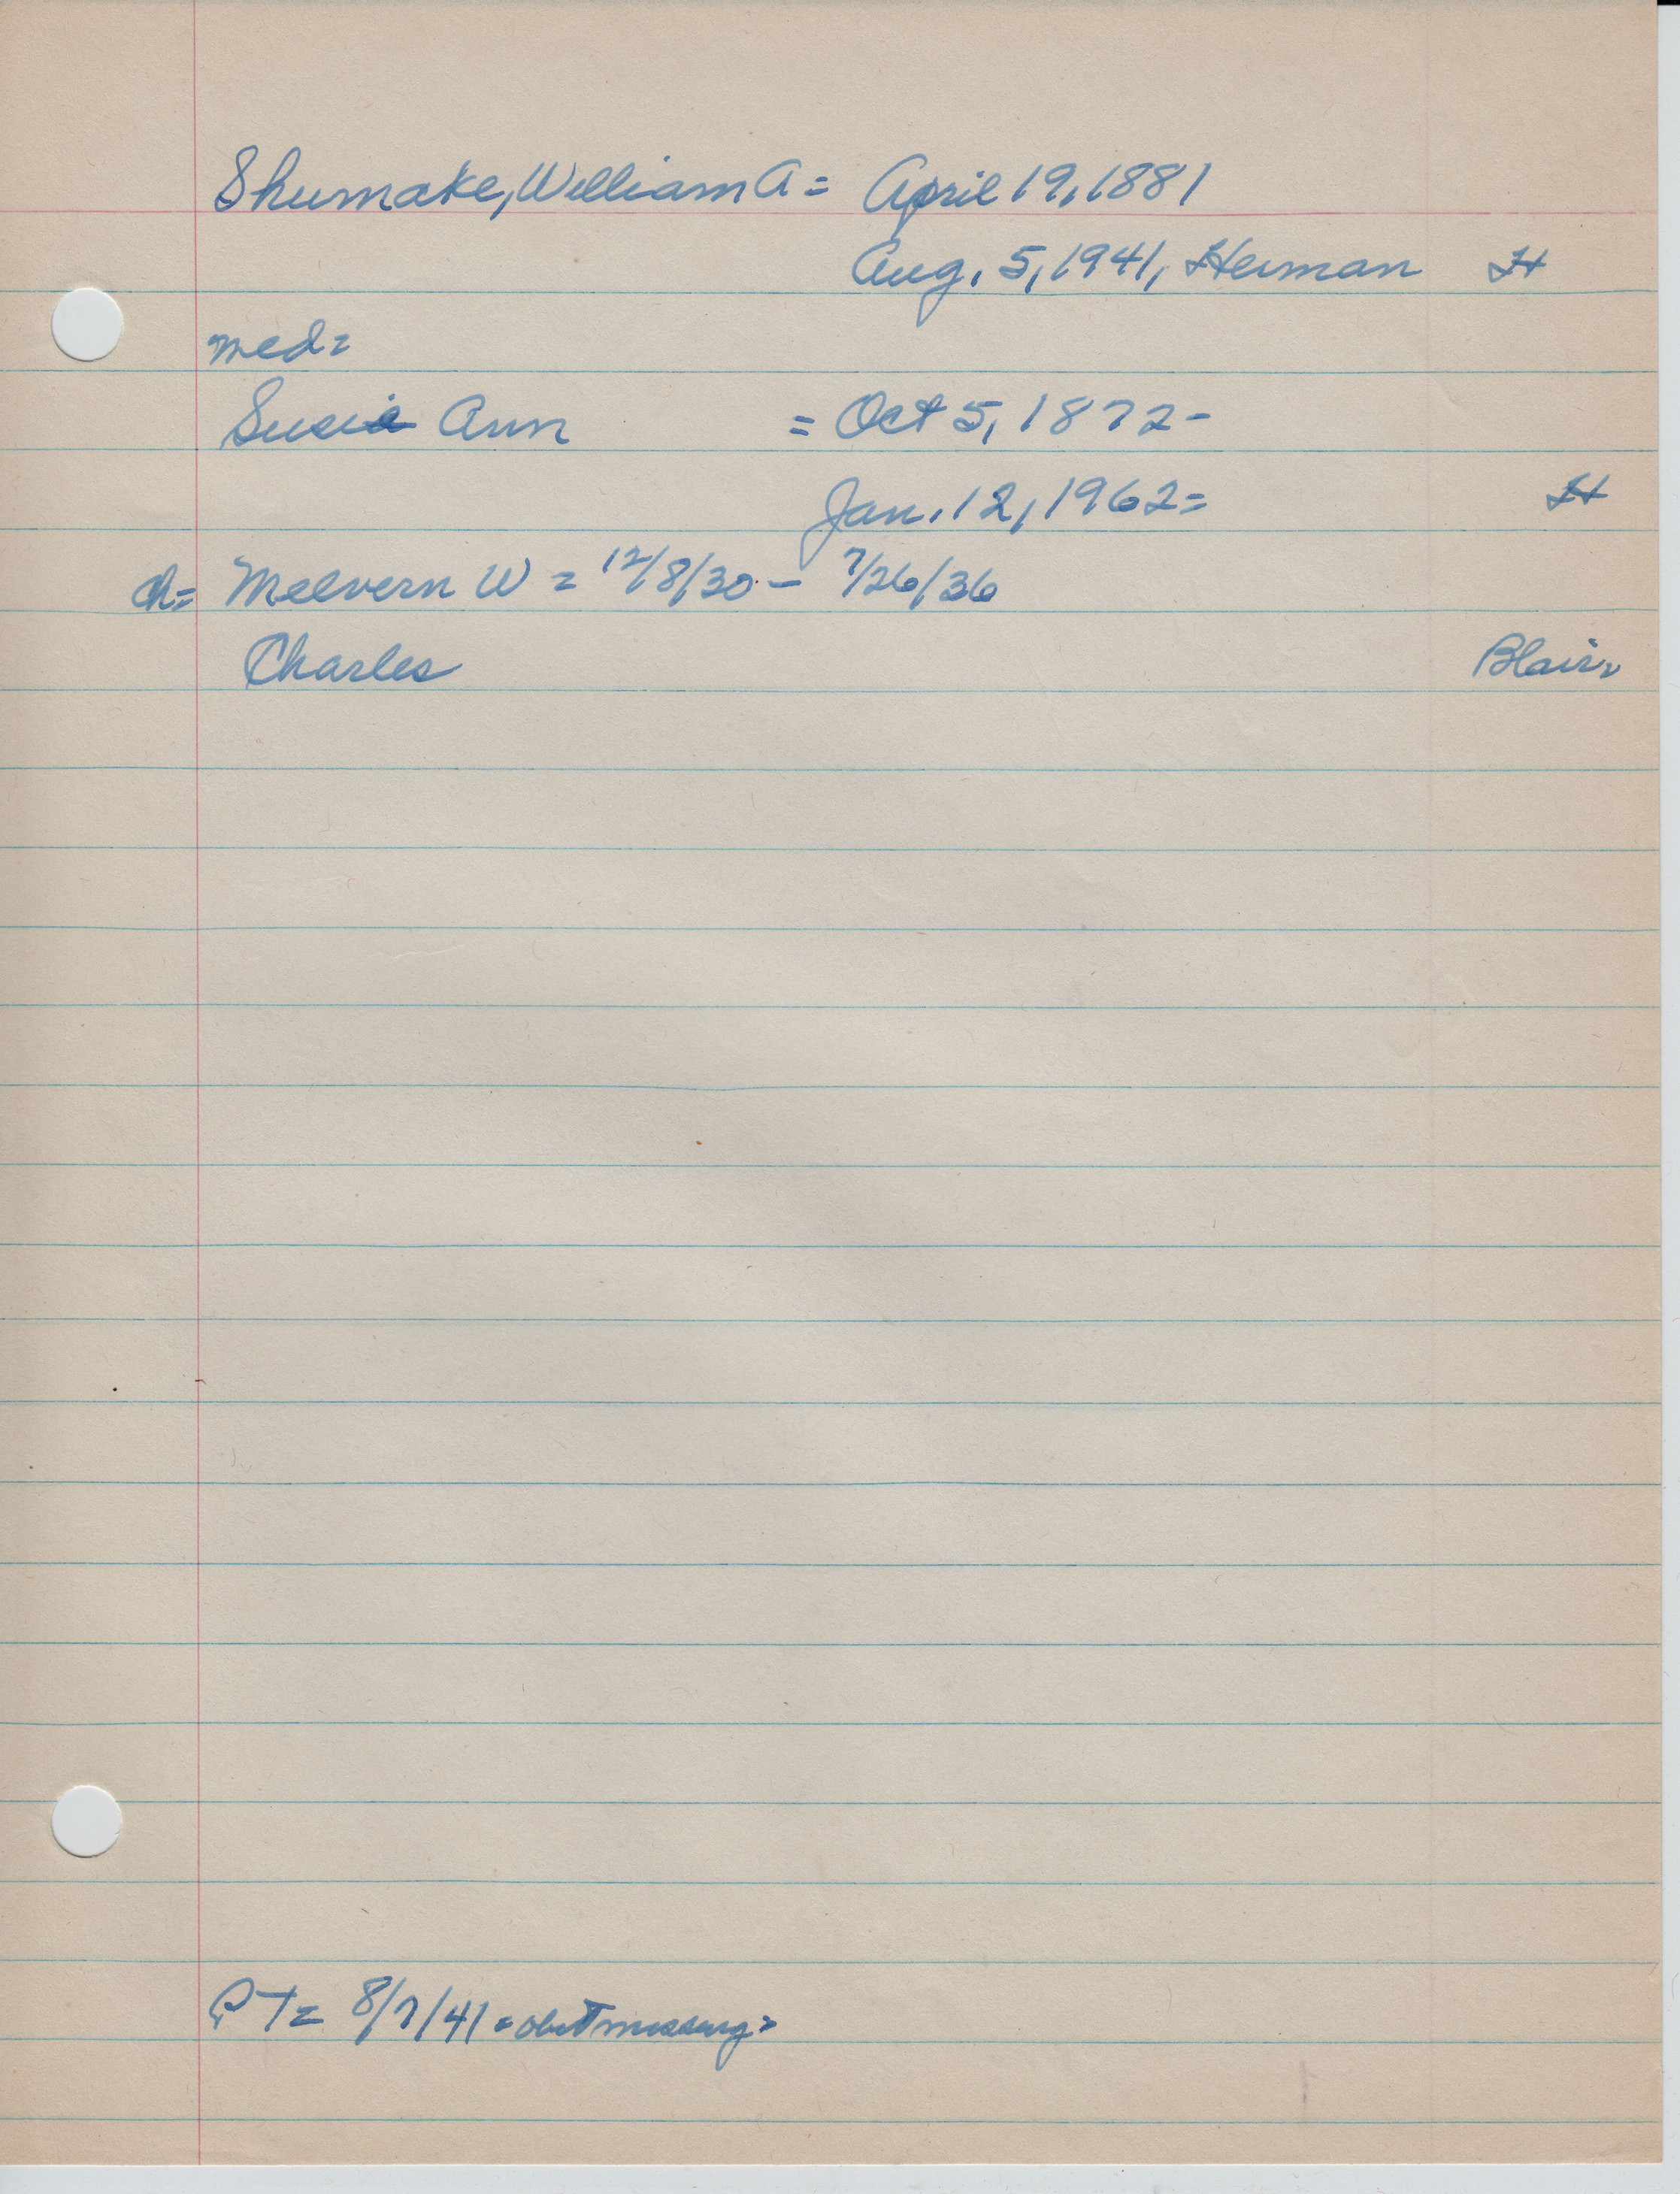 Shumake, William A = April 19, 1881
Aug. 5, 1941, Herman H
med=
Susie Ann = Oct 5, 1872-
Jan. 12, 1962= H
ch= Melvern W = 12/8/30 - 7/26/36
Charles Blair=
PT= 8/7/41 = obit missing=